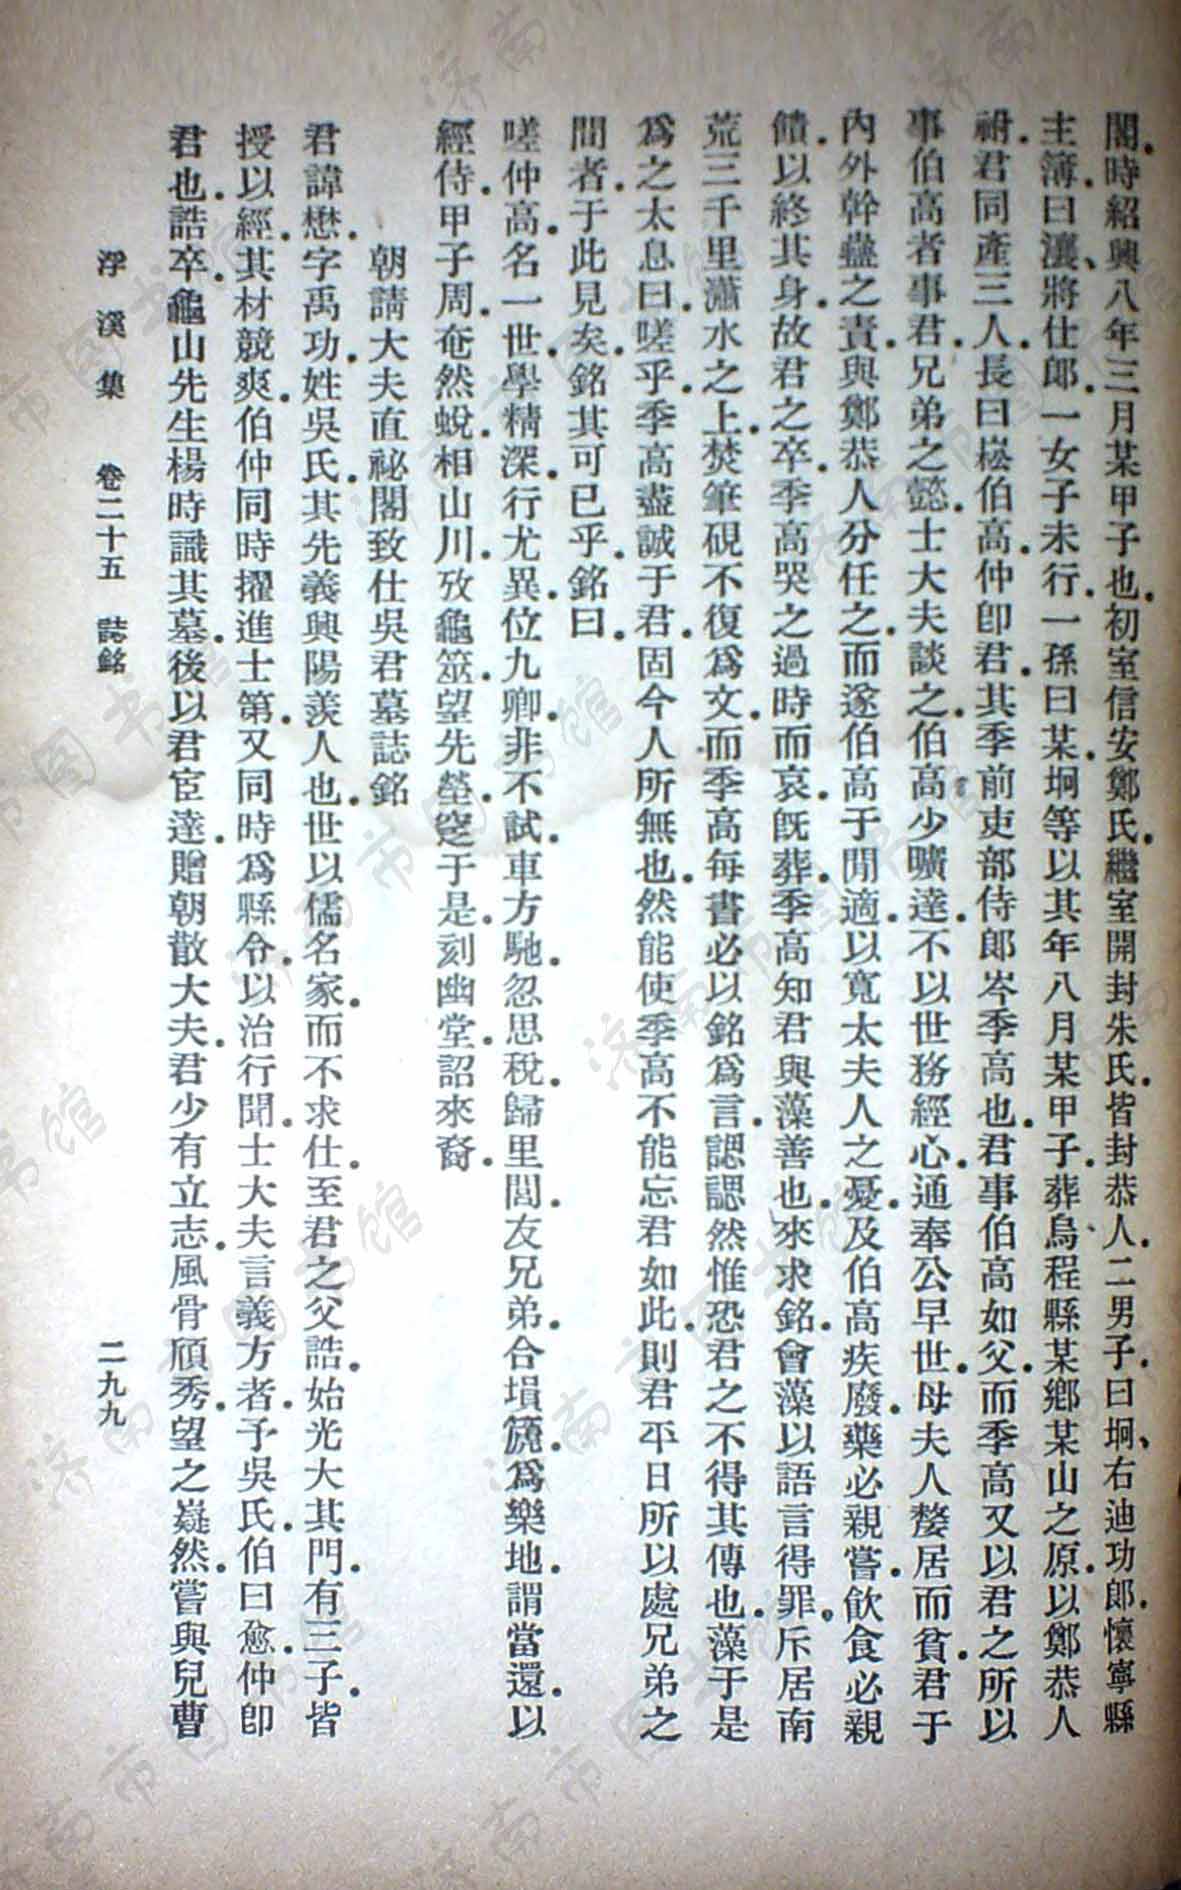 閣時紹興八年三月某甲子也初室信安鄭氏繼室開封朱氏皆封恭人二男子曰坰右迪功郎懷寧縣
主簿曰瀼將仕郎一女子未行一孫曰某坰等以其年八月某甲子葬烏程縣某鄉某山之原以鄭恭人
祔君同產三人長曰崧伯高仲卽君其季前吏部侍郎岑季高也君事伯高如父而季高又以君之所以
事伯高者事君兄弟之懿士大夫談之伯高少曠達不以世務經心通奉公早世母夫人嫠居而貧君于
內外幹蠱之責與鄭恭人分任之而遂伯高于閒適以寬太夫人之憂及伯高疾廢藥必親嘗飲食必親
饋以終其身故君之卒季高哭之過時而哀旣葬季高知君與藻善也來求銘會藻以語言得罪斥居南
荒三千里瀟水之上焚筆硯不復爲文而季高每書必以銘爲言諰諰然惟恐君之不得其傳也藻于是
爲之太息曰嗟乎季高盡誠于君固今人所無也然能使季高不能忘君如此則君平日所以處兄弟之
間者于此見矣銘其可已乎銘曰
嗟仲高名一世學精深行尤異位九卿非不試車方馳忽思稅歸里閭友兄弟合塤篪爲樂地謂當還以
經侍甲子周奄然蛻相山川攷龜筮望先塋窆于是刻幽堂詔來裔
朝請大夫直祕閣致仕吳君墓誌銘
君諱懋字禹功姓吳氏其先義興陽羨人也世以儒名家而不求仕至君之父誥始光大其門有三子皆
授以經其材競爽伯仲同時擢進士第又同時爲縣令以治行聞士大夫言義方者予吳氏伯曰愈仲卽
君也誥卒龜山先生楊時識其墓後以君宦達贈朝散大夫君少有立志風骨頎秀望之嶷然嘗與兒曹
浮溪集 卷二十五 誌銘 二九九
济南市图书馆